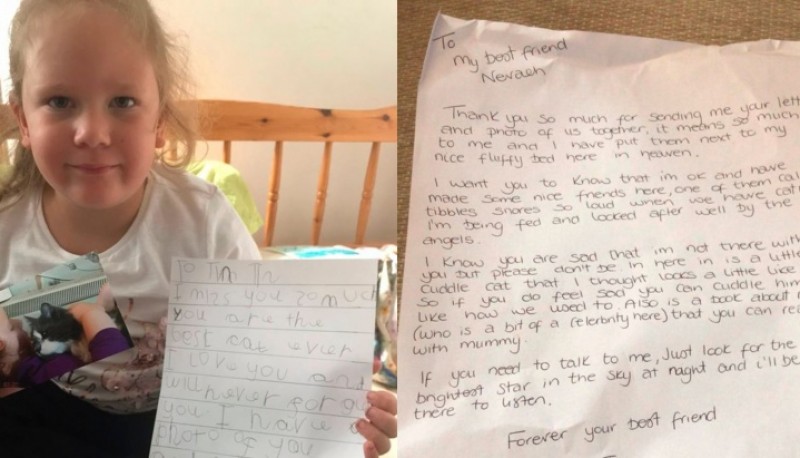 To Tin Tin
I mizs you zo much
you are the
best cat ever
I love you and
will never forg
you I have a
photo of you
To
My best friend
Nevaeh
Thank you so much for sending me your lett
and photo of us together, it means so much
to me and I have put them next to my
nice fluffy bed here in heaven.
I want you to know that im ok and have
made some nice friends here, one of them cal
tibbles snores so loud when we have cat
i'm being fed and looked after well by the
angels.
I know you are sad that im not there with
you but please don't be. In here is a little
cuddle cat that I thought looks a little like
So if you do feel sad you can cuddle him
like how we used to. Also is a book about
(who is a bit of a celebrity here) that you can rea
with mummy.
If you need to talk to me, Just look for the
brightest star in the sky at night and i'll be
there to listen.
Forever your best friend